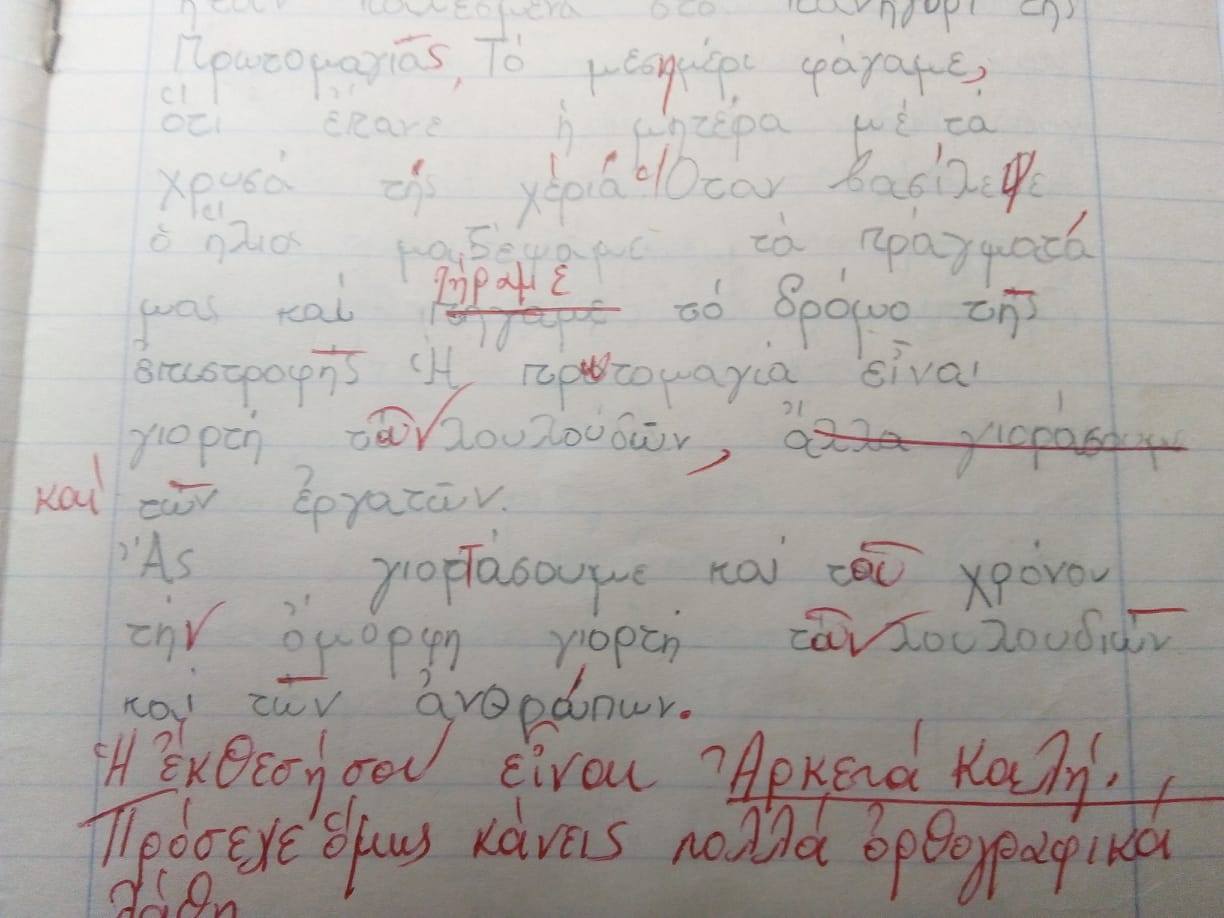 στο πανηγύρι της
Πρωτομαγιᾶς, Τό μεσημέρι φάγαμε,
ὅτι ἔκανε ἡ μητέρα μέ τά
χρυσά τής χέριά Ὅταν βασίλεψε
ὁ ἥλιος μαζέψαμε τά πράγματά
πήραμε
μας καί πήγαμε τό δρόμο τῆς
ἐπιστροφῆς Ἡ πρωτομαγιά εἶναι
γιορτή τῶν λουλουδῶν, ἄλλα γιοράσουμε
καί τῶν ἐργατῶν.
Ἄς γιορτάσουμε καί τοῦ χρόνου
τήν ὄμορφη γιορτή τῶν λουλουδιῶν
καί τῶν ἀνθρώπων.
Ἡ ἔκθεσή σου εἶναι Ἀρκετά καλή.
Πρόσεχε ὅμως κάνεις πολλά ὀρθογραφικά
λάθη